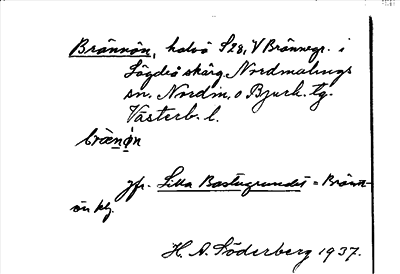 Brännön, halvö S28, V Brännegr. i
Lögdeå skärg. Nordmalings
sn. Nordm. o Bjurh. tg.
Västerb. l.
bræ̀nö̀n
jfr. Lilla Bastugrundet = Bränn-
ön kbg.
H. A. Söderberg 1937.